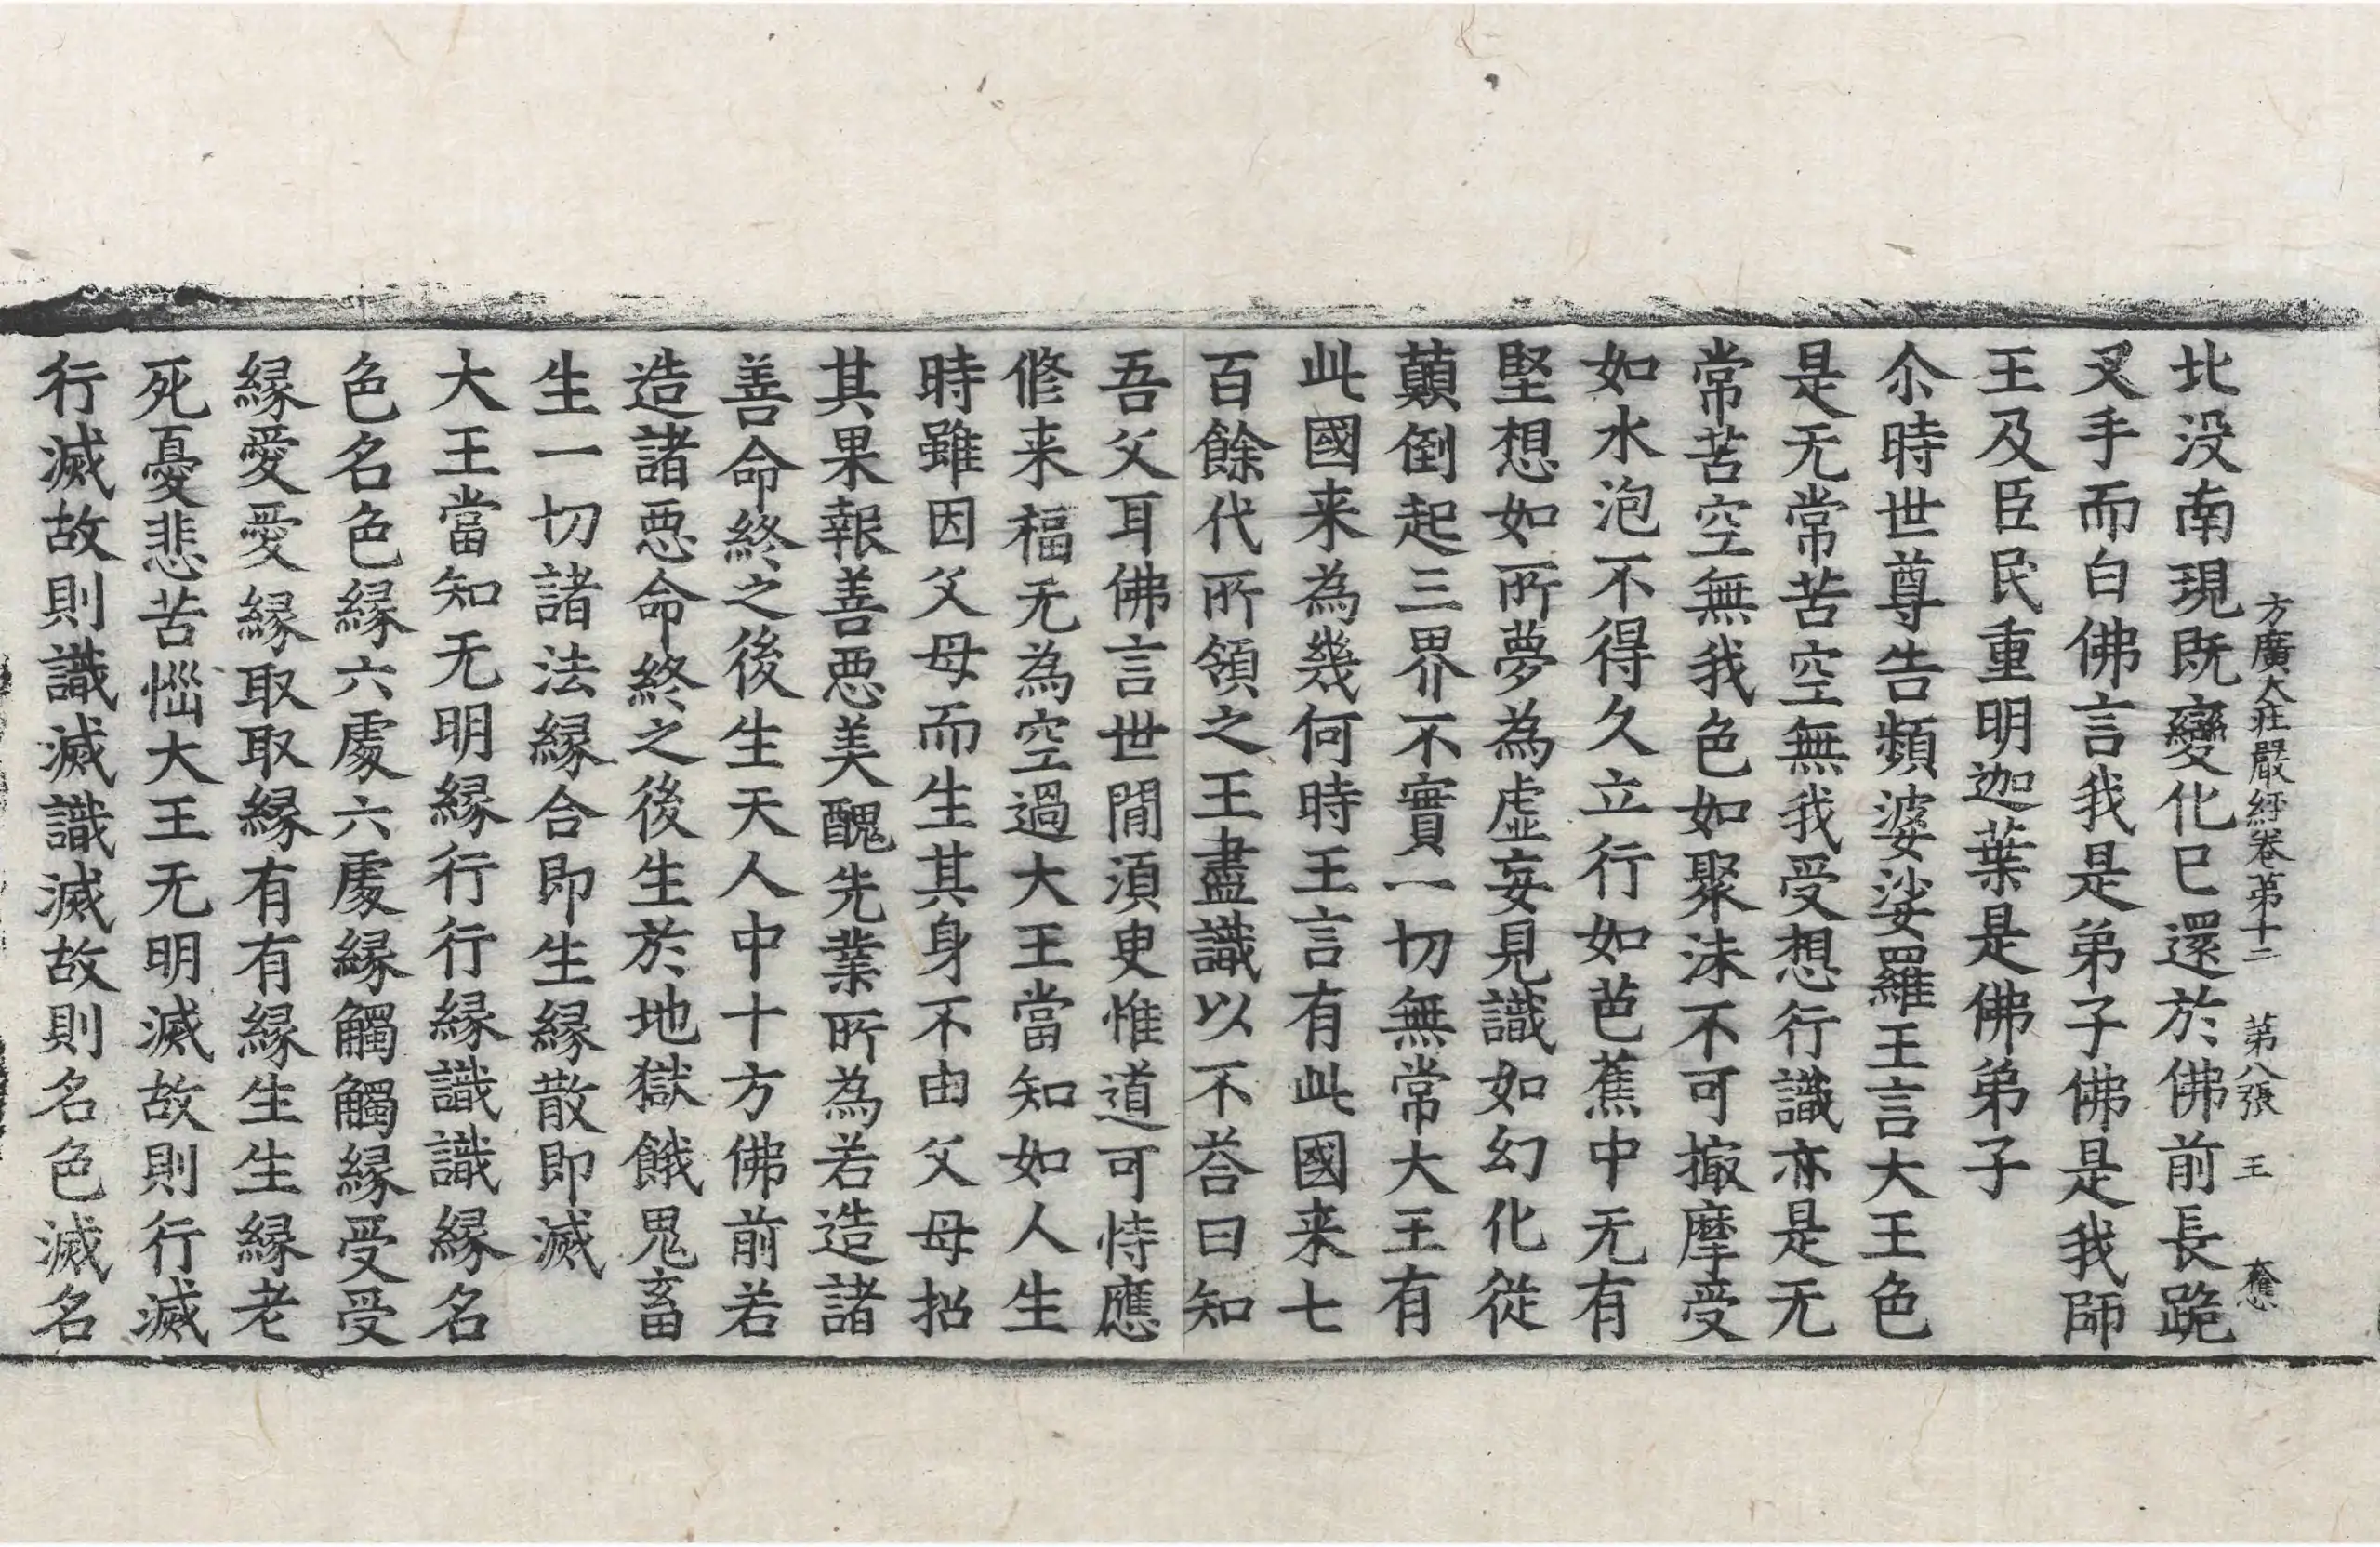 方廣大莊嚴經卷第十二 第八張 王
北没南現既變化已還於佛前長跪
叉手而白佛言我是弟子佛是我師
王及臣民重明迦葉是佛弟子
尒時世尊告頻婆娑羅王言大王色
是无常苦空無我受想行識亦是无
常苦空無我色如聚沫不可撮摩受
如水泡不得久立行如芭蕉中无有
堅想如所夢為虛妄見識如幻化從
顛倒起三界不實一切無常大王有
此國来為幾何時王言有此國来七
百餘代所領之王盡識以不荅曰知
吾父耳佛言世閒須臾惟道可恃應
修来福无為空過大王當知如人生
時雖因父母而生其身不由父母招
其果報善惡美醜先業所為若造諸
善命終之後生天人中十方佛前若
造諸惡命終之後生於地獄餓鬼畜
生一切諸法緣合即生緣散即滅
大王當知无明緣行行緣識識緣名
色名色緣六處六處緣觸觸緣受受
緣愛愛緣取取緣有有緣生生緣老
死憂悲苦惱大王无明滅故則行滅
行滅故則識滅識滅故則名色滅名